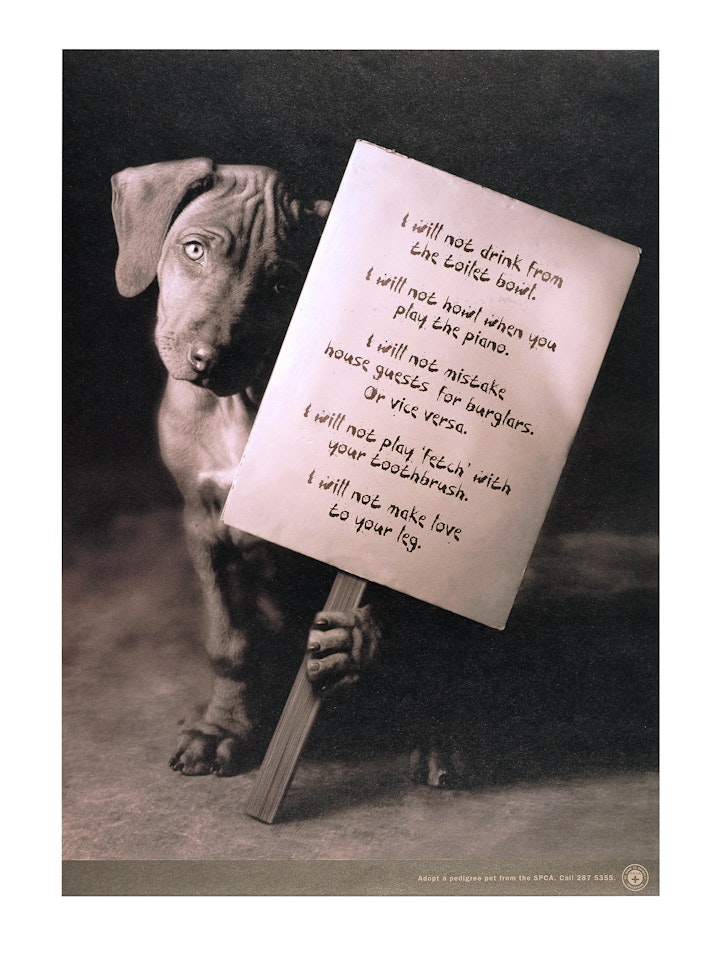 I will not drink from
the toilet bowl.
I will not howl when you
play the piano.
I will not mistake
house guests for burglars.
Or vice versa.
I will not play 'fetch' with
your toothbrush.
I will not make love
to your leg.
Adopt a pedigree pet from the SPCA. Call 287 5355.